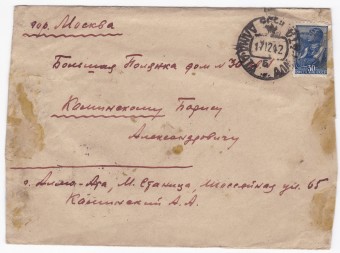 гор. Москва
Большая Полянка дом № 30
Каминскому Борису
Александровичу
г. Алма-Ата, М. Станица, Шоссейная ул. 65
Каминский А. А.
СССР
17 12 42
30